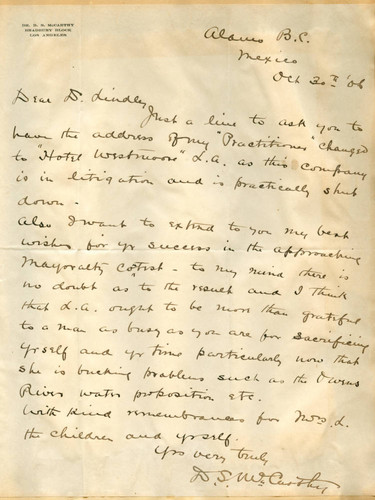 DR. D. S. McCARTHY
BRADBURY BLOCK
LOS ANGELES
Alamo B.C.
Mexico
Oct 30th '06
Dear Dr. Lindley
Just a line to ask you to
have the address of my "Practitioner" changed
to "Hotel Westmoore" L.A. as this company
is in litigation and is practically shut
down -
Also I want to extend to you my best
wishes for yr success in the approaching
Mayoralty contest - to my mind there is
no doubt as to the result and I think
that L.A. ought to be more than grateful
to a man as busy as you are for sacrificing
yrself and yr time particularly now that
she is bucking problems such as the Owens
River water proposition etc.
With kind remembrances for Mrs. L.
the children and yrself.
Yrs very truly
D. S. McCarthy